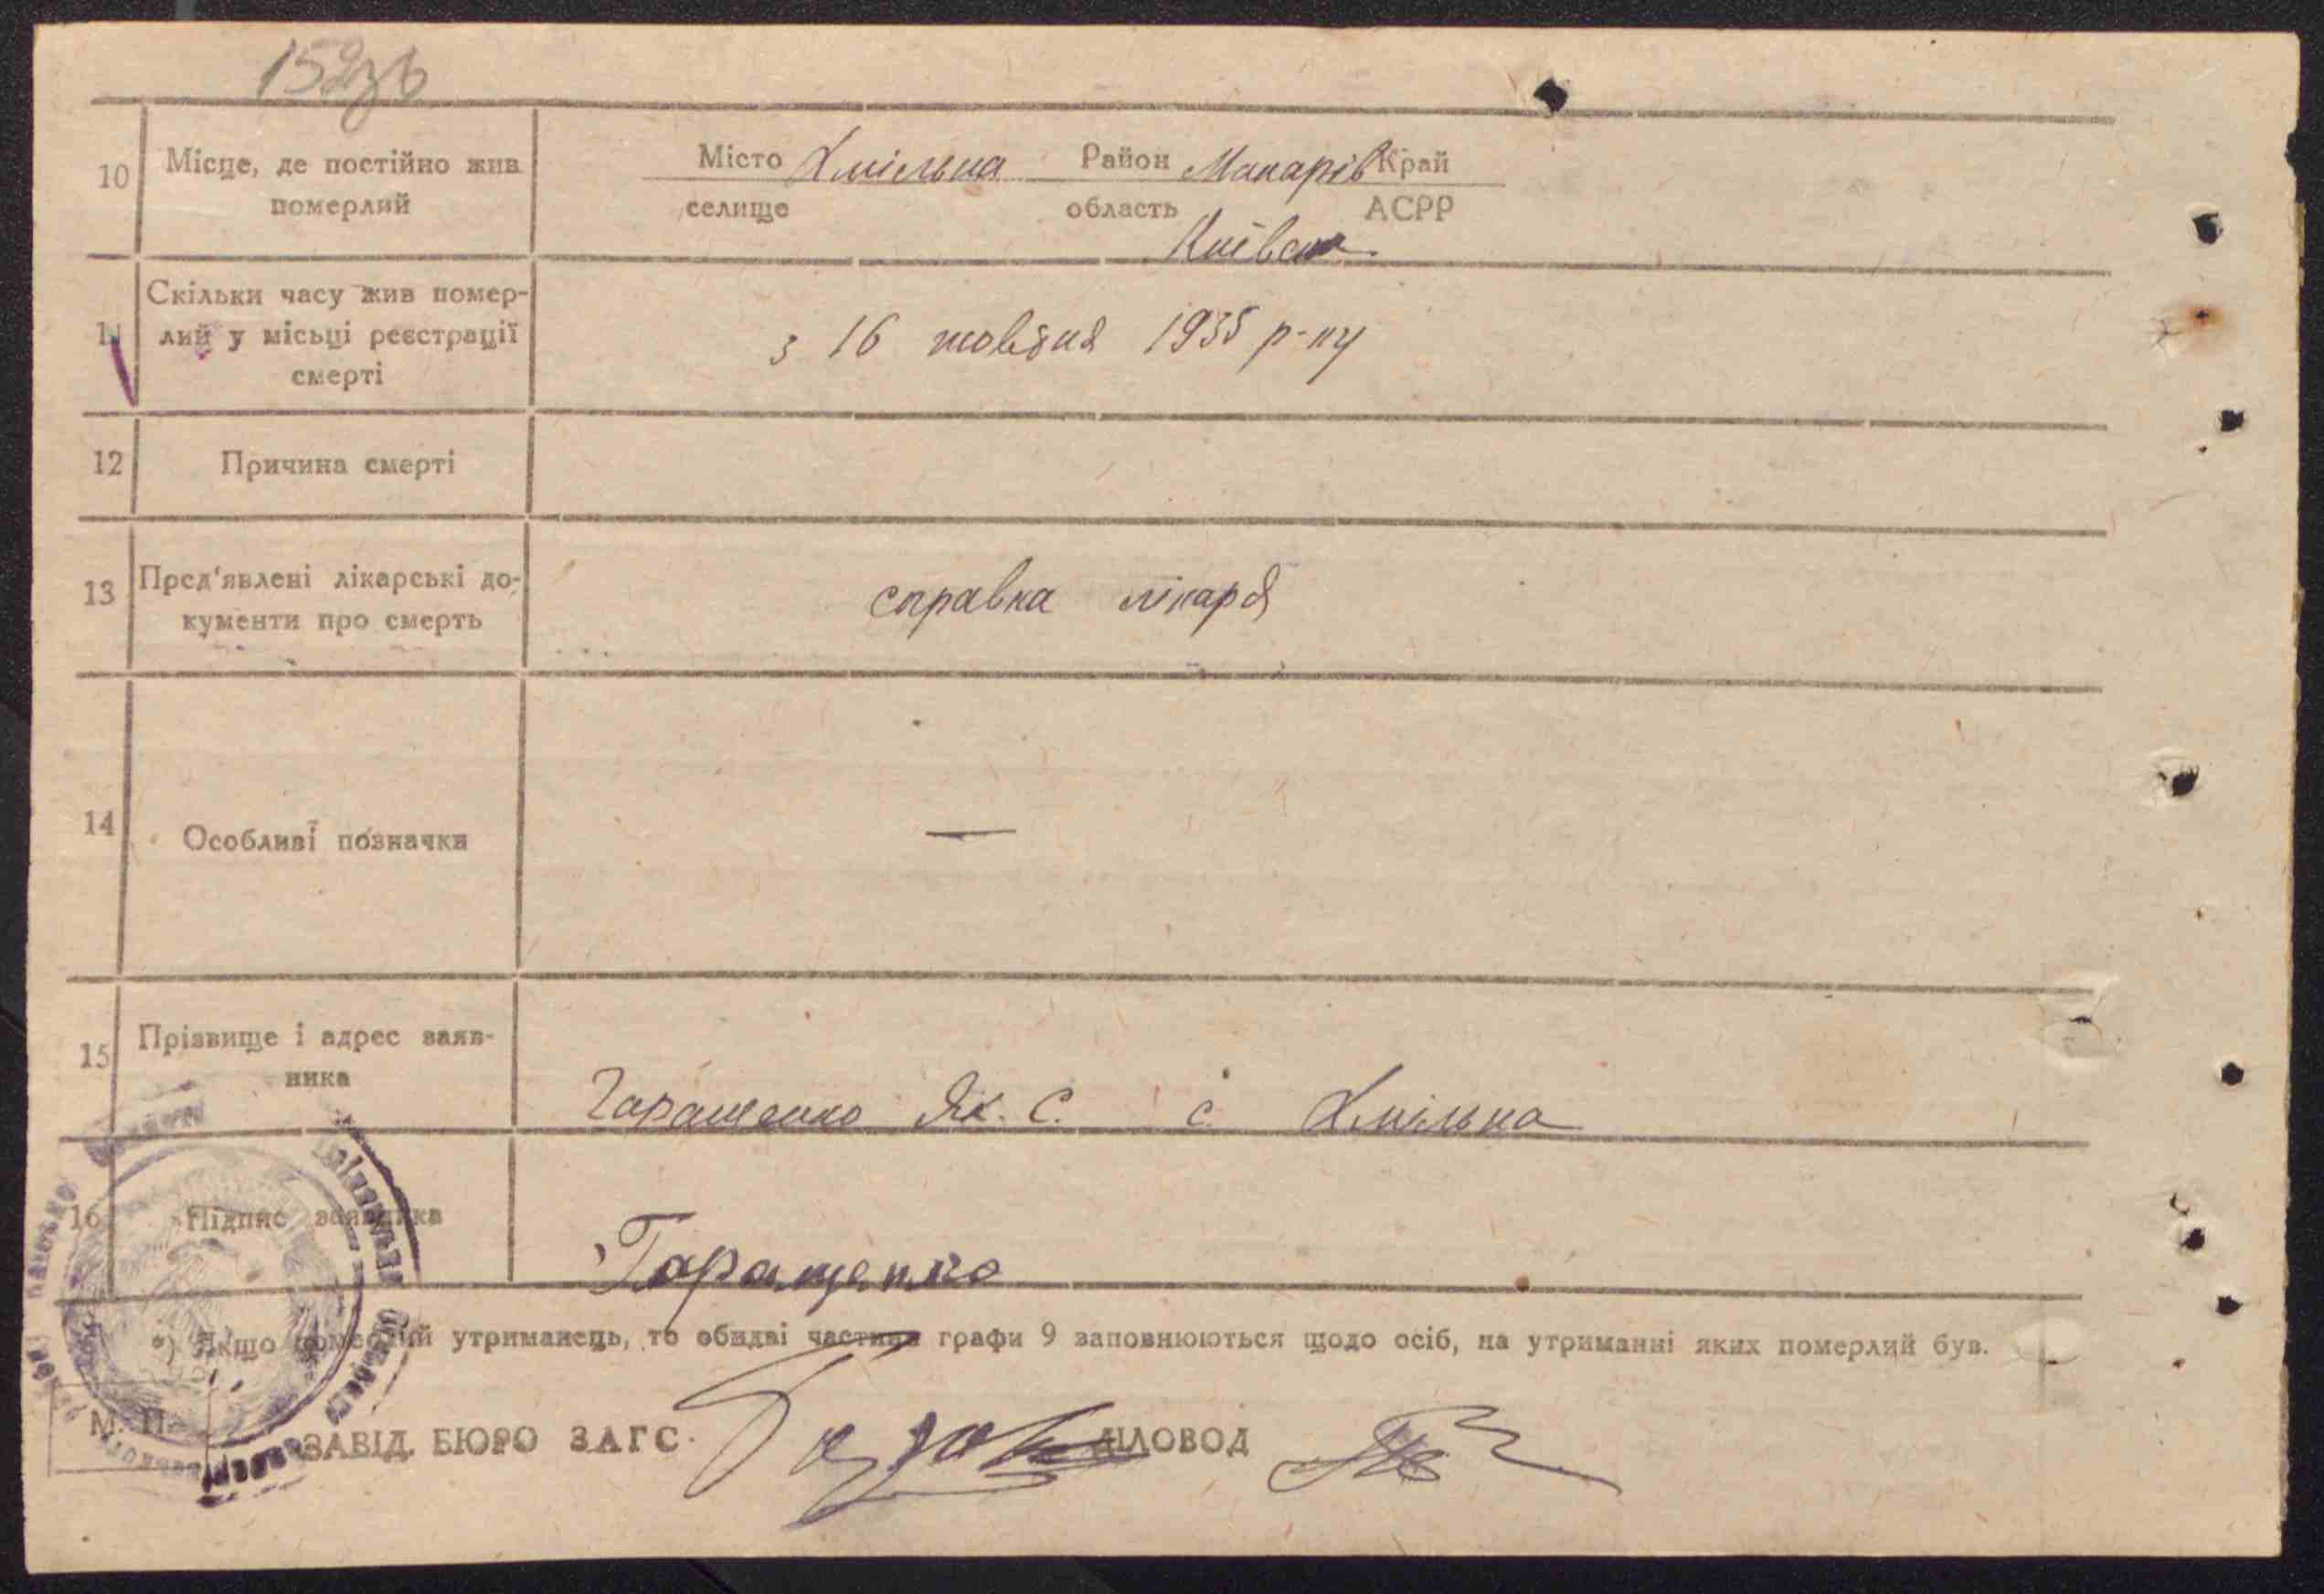 152зв
10 Місце, де постійно жив померлий
Місто Хмільна Район Макарів Край
селище область АСРР
Київська
11 Скільки часу жив помер-
лий у місці реєстрації
смерті
з 16 жовтня 1935 р-ку
12 Причина смерті
13 Пред'явлені лікарські до-
кументи про смерть
справка лікаря
14 Особливі позначки
—
15 Прізвище і адрес заяв-
ника
Гаращенко Як. С. с. Хмільна
16 Підпис заявника
Гаращенко
*) Якщо померлий утриманець, то обидві частини графи 9 заповнюються щодо осіб, на утриманні яких померлий був.
М. П.
ЗАВІД. БЮРО ЗАГС. ДІЛОВОД